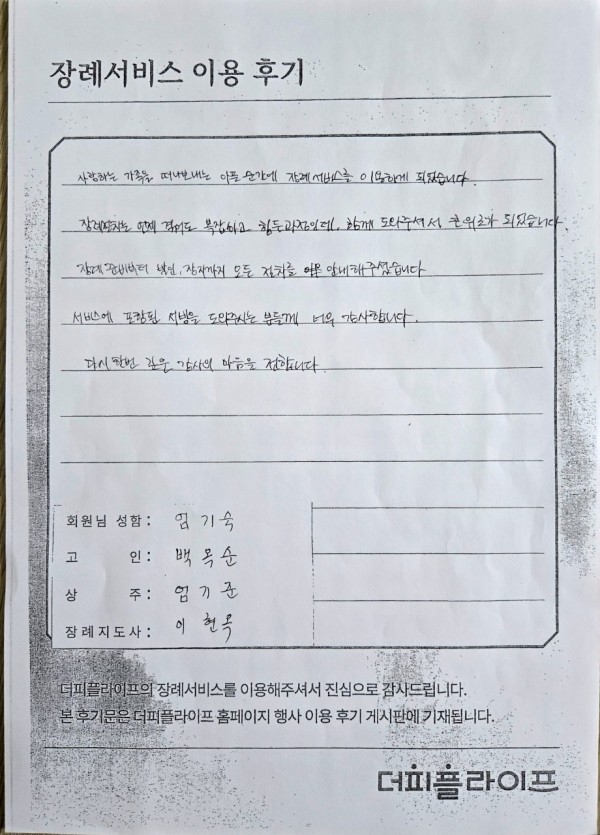 장례서비스 이용 후기
사랑하는 가족을 떠나보내는 아픈 순간에 장례서비스를 이용하게 되었습니다.
장례절차는 언제 겪어도 복잡하고 힘든과정인데, 함께 도와주셔서 큰위로가 되었습니다.
장례 준비부터 발인, 장지까지 모든 절차를 안내해주셨습니다
서비스에 포함된 서빙을 도와주시는 분들께 너무 감사합니다.
다시한번 깊은 감사의 마음을 전합니다.
회원님 성함 : 엄기숙
고 인 : 백옥순
상 주 : 엄기준
장례지도사 : 이현옥
더피플라이프의 장례서비스를 이용해주셔서 진심으로 감사드립니다.
본 후기문은 더피플라이프 홈페이지 행사 이용 후기 게시판에 기재됩니다.
더피플라이프